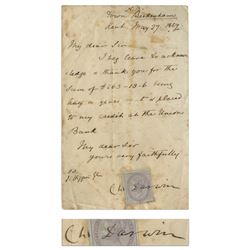 Down, Beckenham
Kent. May 27. 1867
My dear Sir
I beg leave to acknow
ledge & thank you for the
sum of £363-13-6 being
half a year's to be placed
to my credit at the Union
Bank
My dear Sir
yours very faithfully
Ch. Darwin
Ch. Darwin